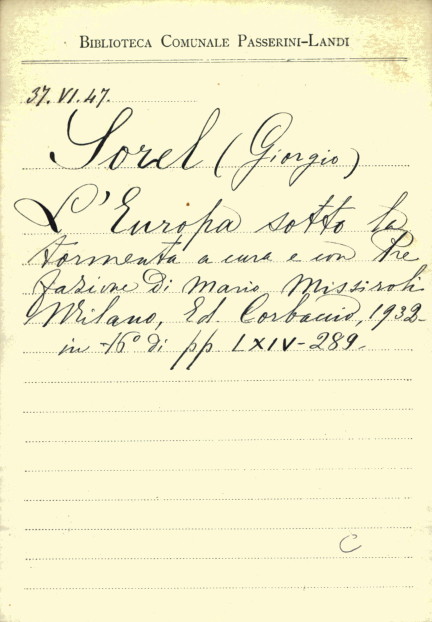 BIBLIOTECA COMUNALE PASSERINI-LANDI
37.VI.47.
Sorel (Giorgio)
L'Europa sotto la
tormenta a cura e con Pre
fazione di Mario Missiroli
Milano, Ed. Corbaccio, 1932-
in -16° di pp LXIV-289-
C